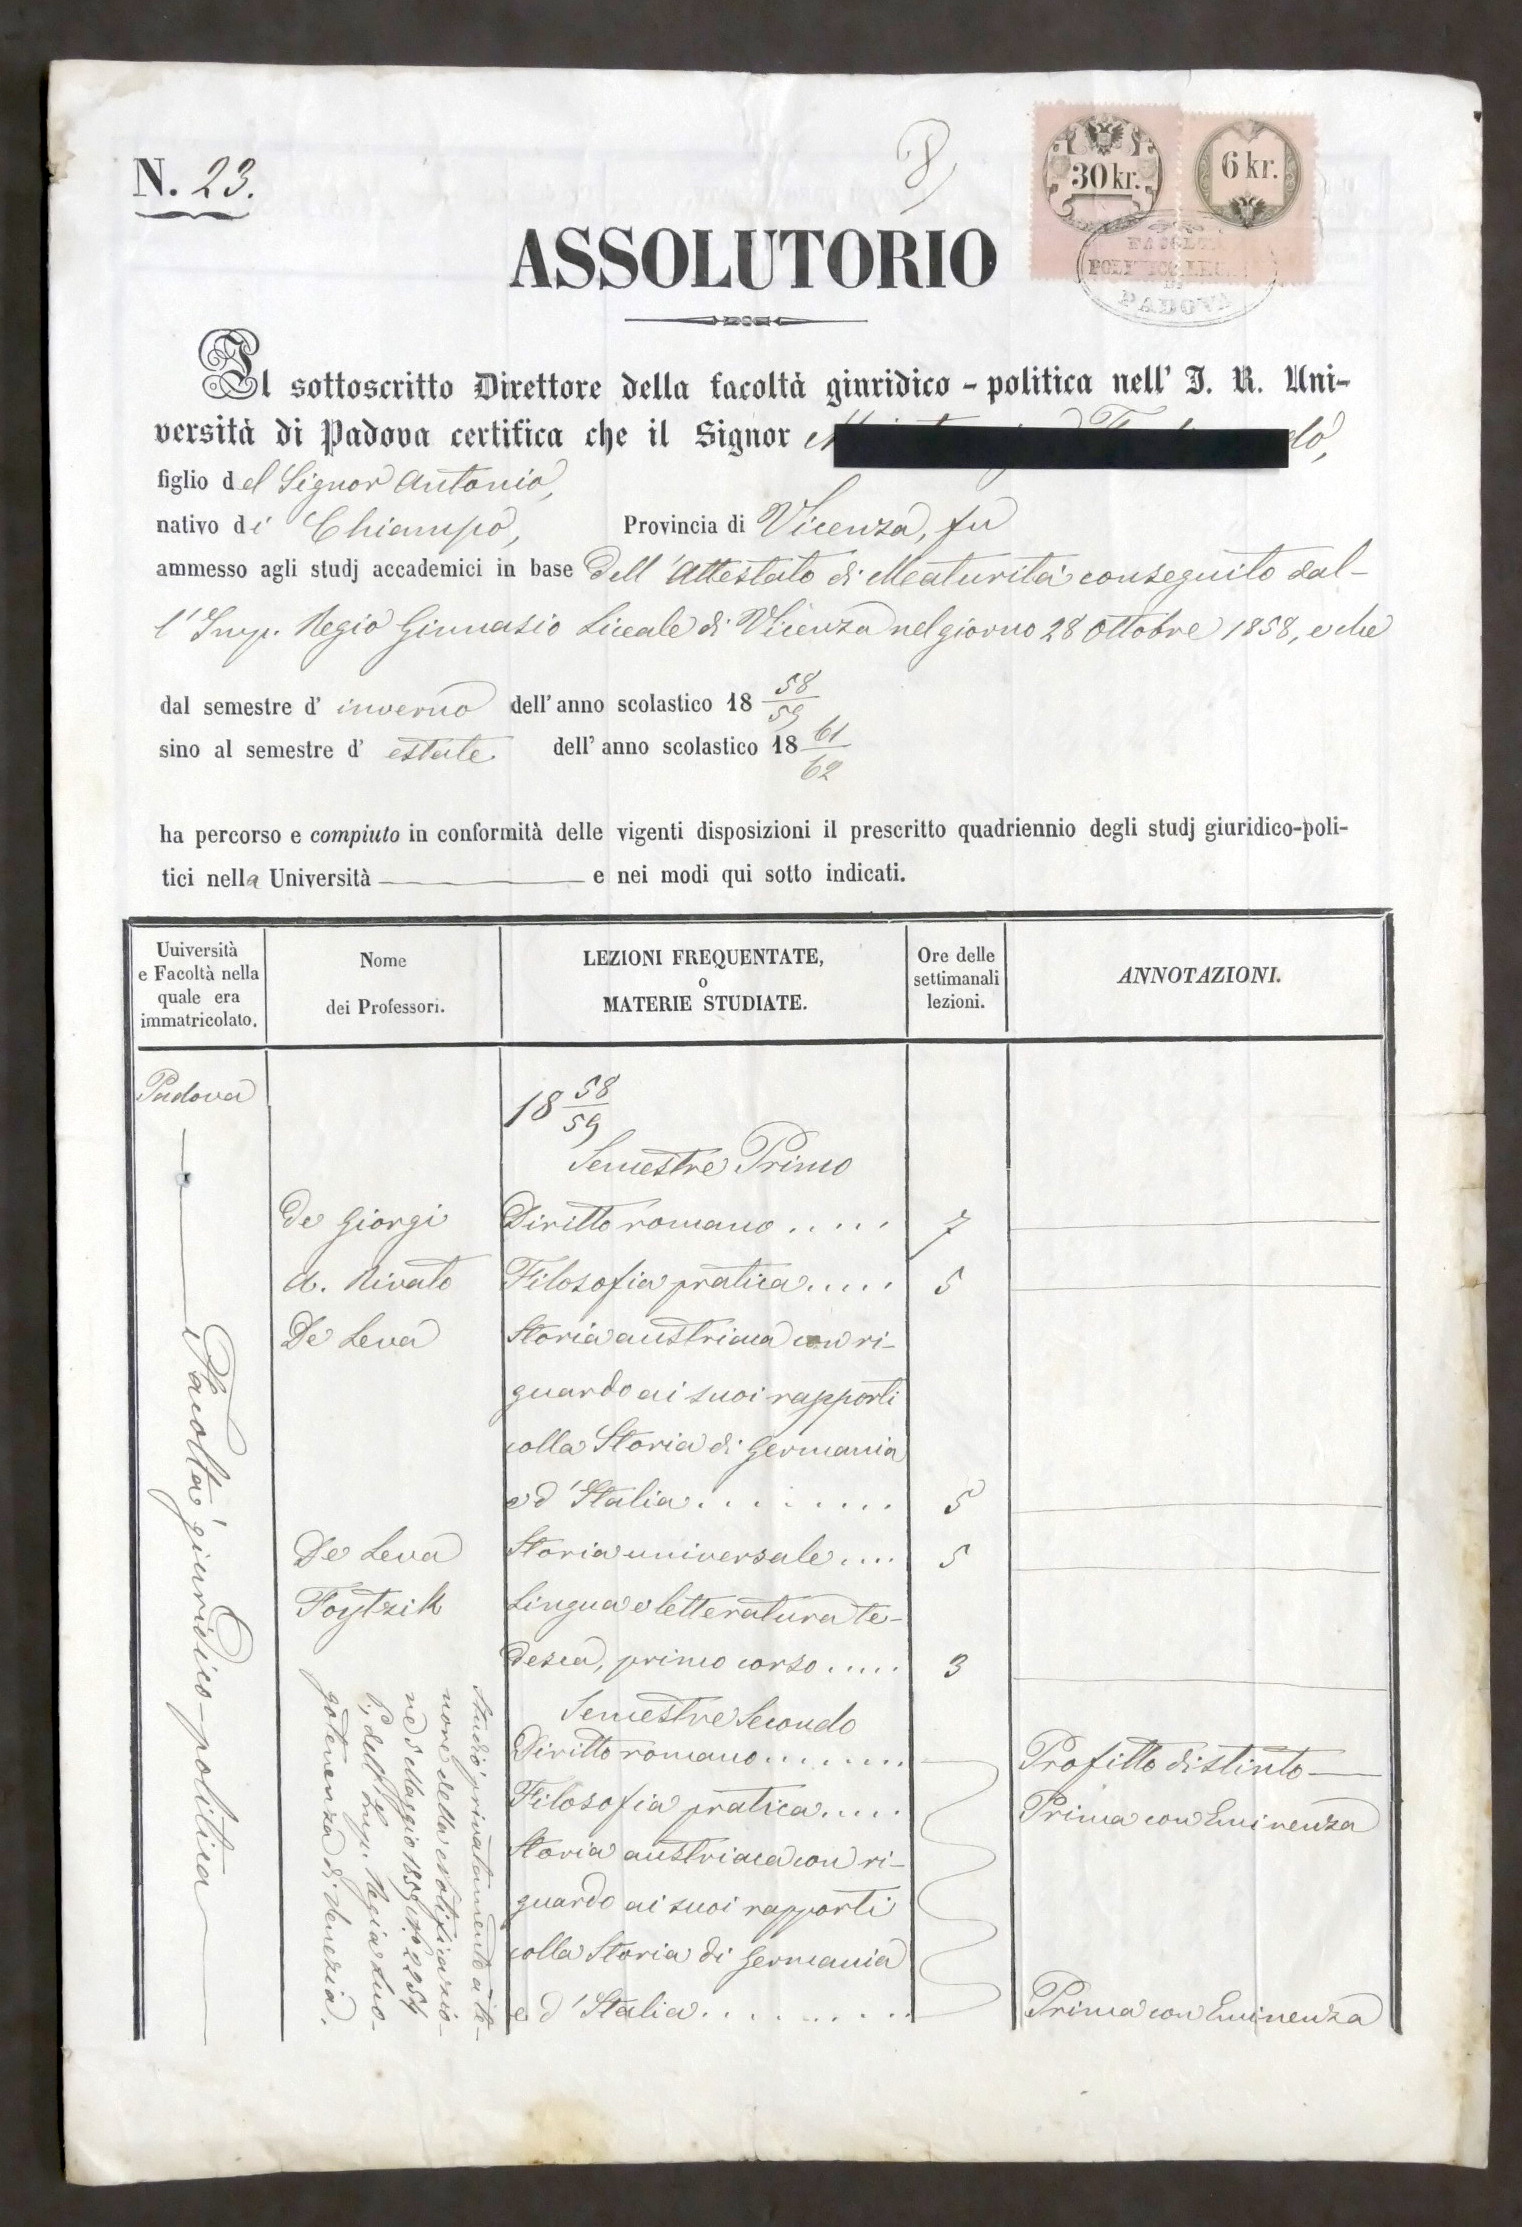 N. 23.
8)
30 kr.
6 kr.
FACOLTÀ
POLITICO LEG
DI
PADOVA
ASSOLUTORIO
Il sottoscritto Direttore della facoltà giuridico-politica nell' I. R. Uni-
versità di Padova certifica che il Signor
figlio del Signor Antonio,
nativo di Chiampo, Provincia di Vicenza, fu
ammesso agli studj accademici in base dell'Attestato di Maturità conseguito dal-
l'Imp. Regio Ginnasio Liceale di Vicenza nel giorno 28 Ottobre 1858, e che
dal semestre d' inverno dell' anno scolastico 18 58/59
sino al semestre d' estate dell' anno scolastico 18 61/62
ha percorso e compiuto in conformità delle vigenti disposizioni il prescritto quadriennio degli studj giuridico-poli-
tici nella Università e nei modi qui sotto indicati.
Uuiversità
e Facoltà nella
quale era
immatricolato.
Nome
dei Professori.
LEZIONI FREQUENTATE,
o
MATERIE STUDIATE.
Ore delle
settimanali
lezioni.
ANNOTAZIONI.
Padova
Facoltà giuridico-politica
18 58/59
Semestre Primo
De Giorgi Diritto romano ..... 7
A. Rivato Filosofia pratica ..... 5
De Leva Storia austriaca con ri-
guardo ai suoi rapporti
colla Storia di Germania
ed Italia ......... 5
De Leva Storia universale .... 5
Foytzik Lingua e letteratura te-
desca, primo corso ..... 3
Semestre Secondo
Studiò privatamente a te-
nore della Notificazio-
ne 5 Maggio 1859 No 2254
P. dell' Imp. Regia Luo-
gotenenza di Venezia.
Diritto romano ....... Profitto distinto
Filosofia pratica .... Prima con Eminenza
Storia austriaca con ri-
guardo ai suoi rapporti
colla Storia di Germania
e d'Italia .......... Prima con Eminenza